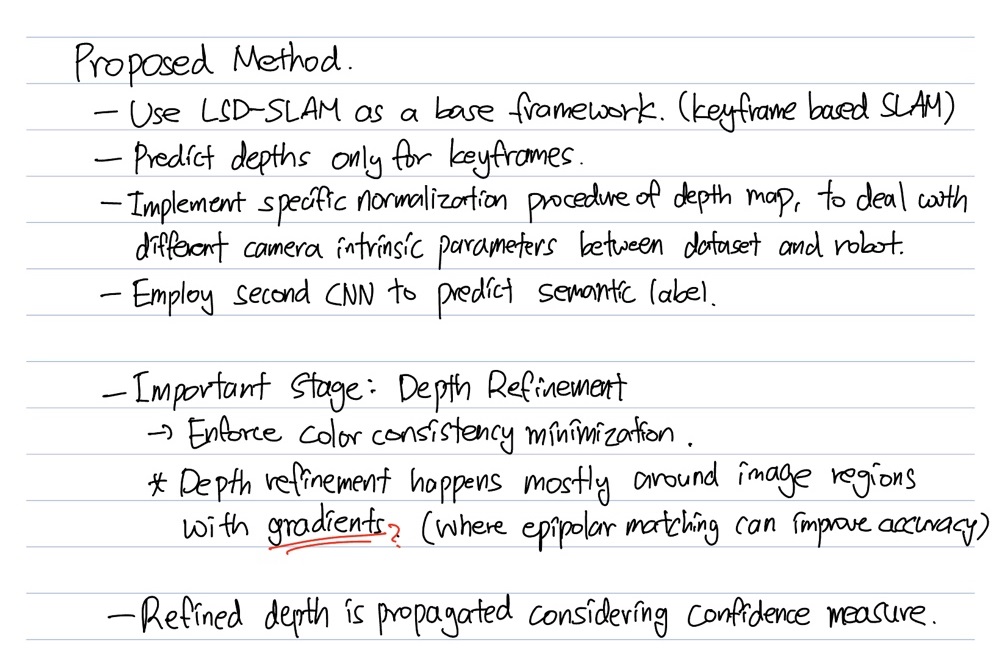 Proposed Method.
- Use LSD-SLAM as a base framework. (keyframe based SLAM)
- Predict depths only for keyframes.
- Implement specific normalization procedure of depth map, to deal with
different camera intrinsic parameters between dataset and robot.
- Employ second CNN to predict semantic label.
- Important Stage: Depth Refinement
→ Enforce color consistency minimization.
* Depth refinement happens mostly around image regions
with gradients? (where epipolar matching can improve accuracy)
- Refined depth is propagated considering confidence measure.